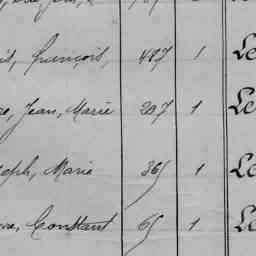 is, François, 487 1 Le
e, Jean, Marie 297 1 Le
seph, Marie 365 1 Le
Constant 65 1 Le